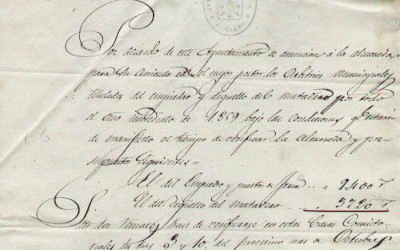 Por acuerdo de este Ayuntamiento se anuncian á la almoneda
para su arriendo en el mejor postor los Arbitrios Municipales
del empiedro y deguello del matadero por todo
el año de 1859 bajo las condiciones q.e estarán
de manifiesto al tiempo de verificar la Almoneda y pre-
supuestos siguientes=
El del Empiedro y puerta a 9400 r.
El del Deguello del Matadero 3720 r.
de verificarse en estas Casas Consito-
riales los dias 3 y 10, del procsimo mes de Octubre